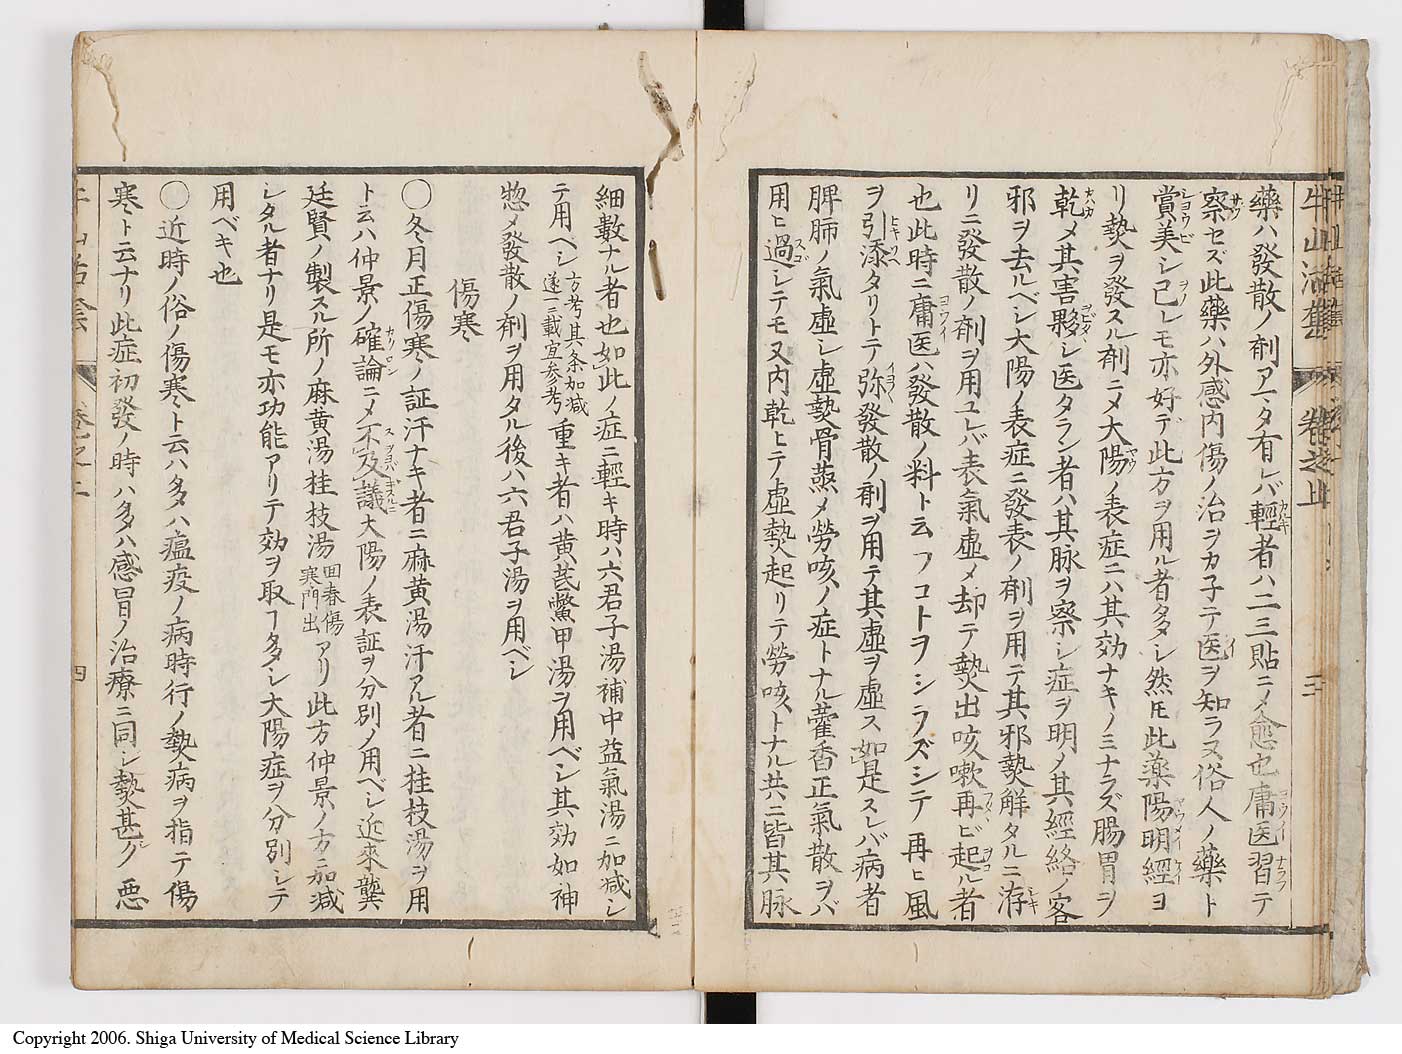 牛山活套 卷之上 三
藥ハ發散ノ剤アマタ有レバ輕者ハ二三貼ニメ愈也庸医習テ
察セズ此藥ハ外感内傷ノ治ヲカ子テ医ヲ知ラヌ俗人ノ藥ト
賞美シ己レモ亦好デ此方ヲ用ル者多シ然𪜈此薬陽明經ヨ
リ𤍠ヲ發スル剤ニメ大陽ノ表症ニハ其効ナキノミナラズ腸胃ヲ
乾メ其害夥シ医タラン者ハ其脉ヲ察シ症ヲ明メ其經絡ノ客
邪ヲ去ルベシ大陽ノ表症ニ發表ノ剤ヲ用テ其邪𤍠解タルニ存
リニ發散ノ剤ヲ用ユレバ表氣虚メ却テ𤍠出咳嗽再ビ起ル者
也此時ニ庸医ハ發散ノ料ト云フコトヲシラズシテ再ヒ風
ヲ引添タリトテ弥發散ノ剤ヲ用テ其虚ヲ虚ス如是スレバ病者
脾肺ノ氣虚シ虚𤍠骨蒸メ勞咳ノ症トナル藿香正氣散ヲバ
用ヒ過シテモ又内乾ヒテ虚𤍠起リテ勞咳トナル共ニ皆其脉
細數ナル者也如此ノ症ニ輕キ時ハ六君子湯補中益氣湯ニ加减シ
テ用ベシ方考其条加减遂一ニ載宜参考重キ者ハ黄芪鱉甲湯ヲ用ベシ其効如神
惣メ發散ノ剤ヲ用タル後ハ六君子湯ヲ用ベシ
傷寒
〇冬月正傷寒ノ証汗ナキ者ニ麻黄湯汗アル者ニ桂枝湯ヲ用
ト云ハ仲景ノ確論ニメ不及議大陽ノ表証ヲ分別ノ用ベシ近來龔
廷賢ノ製スル所ノ麻黄湯桂枝湯回春傷寒門出アリ此方仲景ノ方ニ加减
シタル者ナリ是モ亦功能アリテ効ヲ取ヿ多シ大陽症ヲ分別シテ
用ベキ也
〇近時ノ俗ノ傷寒ト云ハ多ハ瘟疫ノ病時行ノ𤍠病ヲ指テ傷
寒ト云ナリ此症初發ノ時ハ多ハ感冒ノ治療ニ同シ𤍠甚グ悪
牛山活套 卷之上 四
Copyright 2006. Shiga University of Medical Science Library